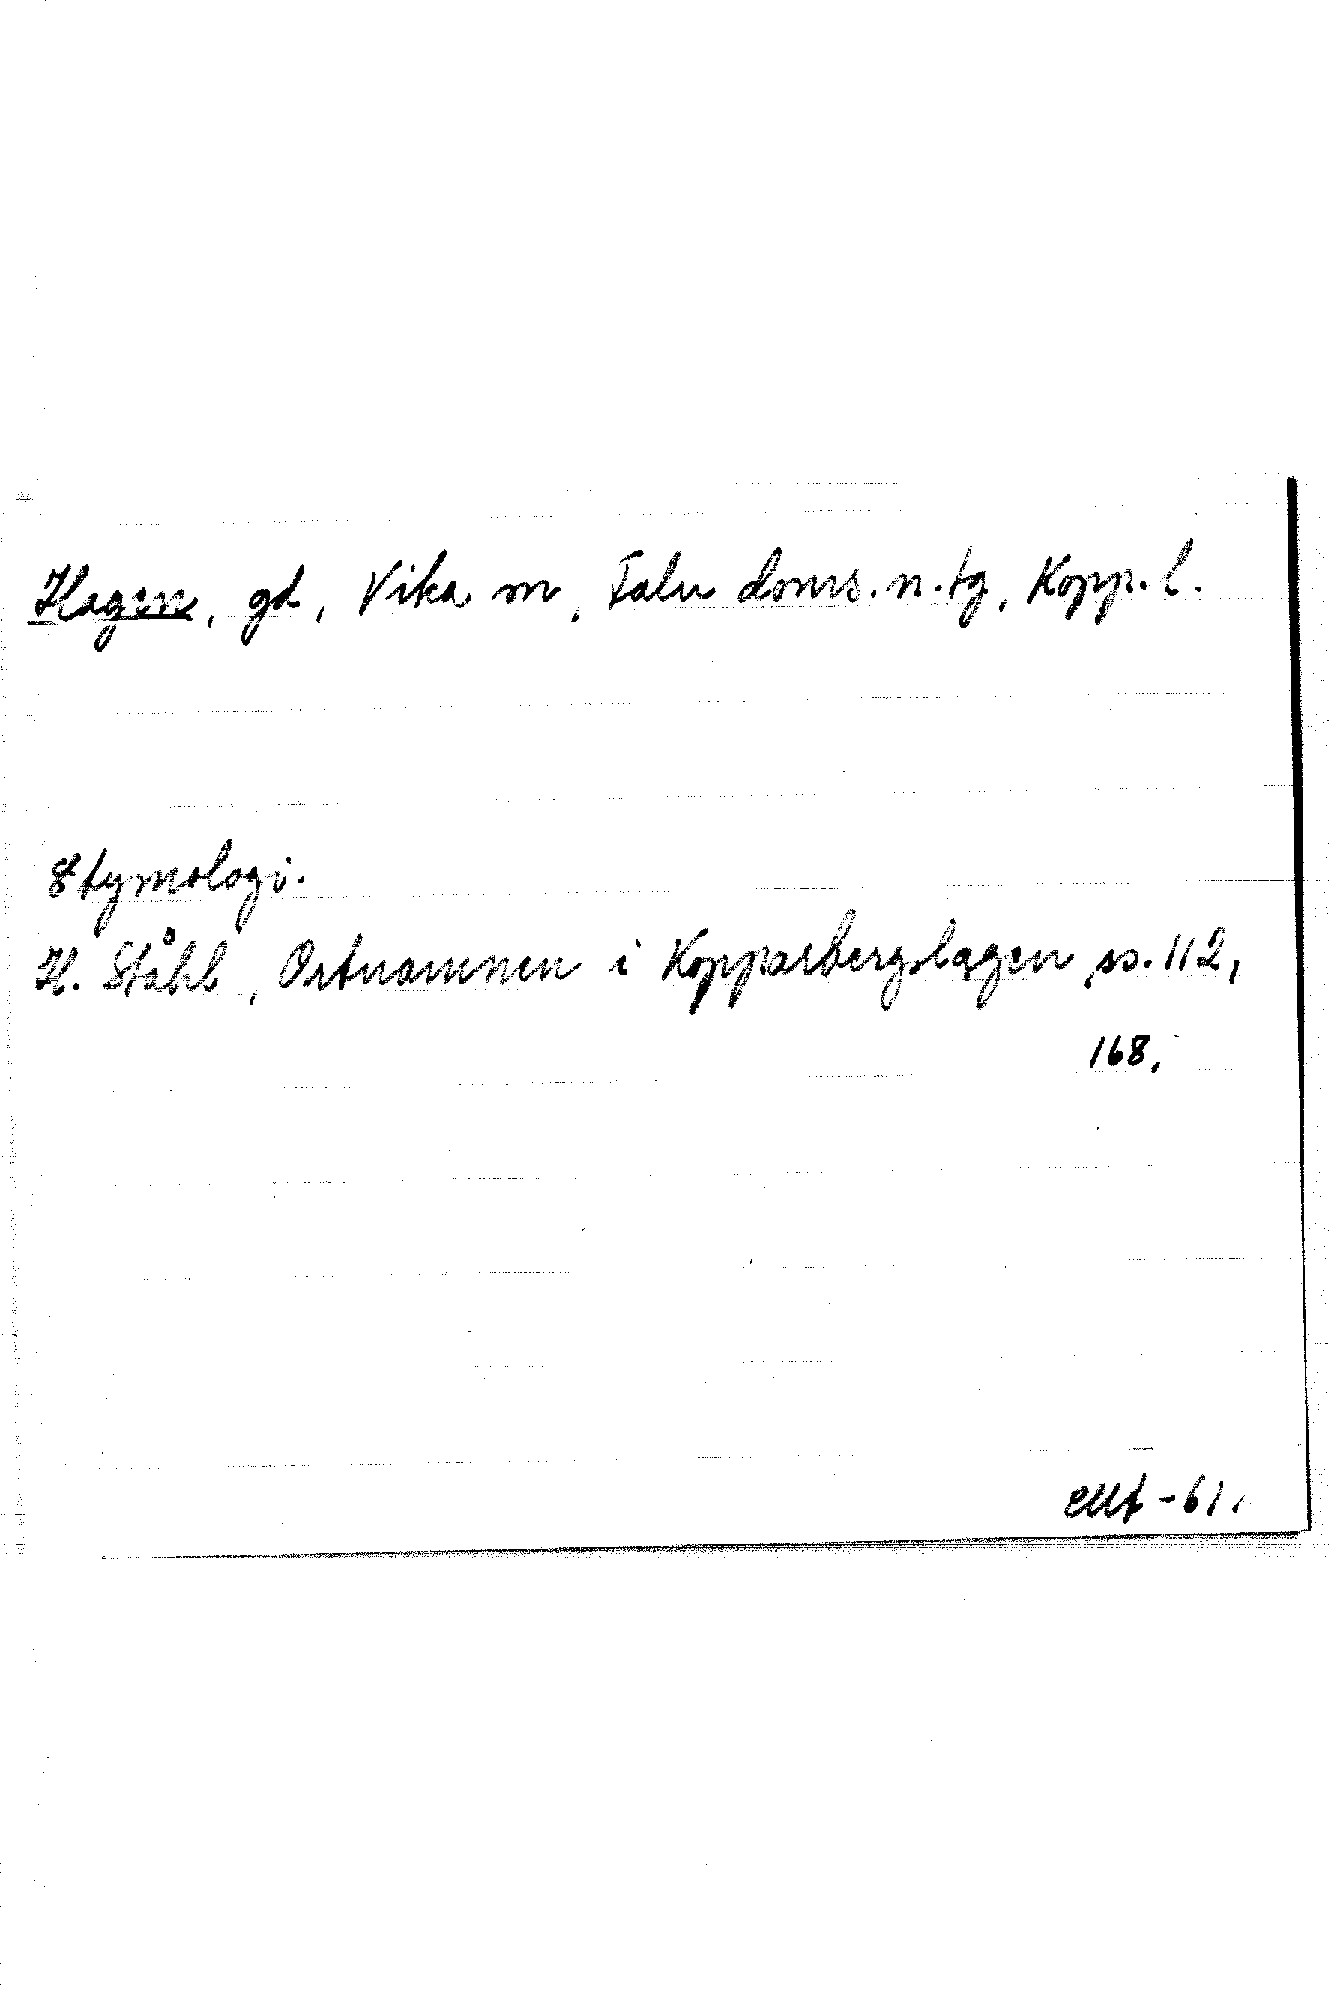 Hagen, gd, Vika sn, Falu doms. n. tg, Kopp. l.
Etymologi.
H. Ståhl, Ortnamnen i Kopparbergslagen, ss. 112,
168.
EMt -61.